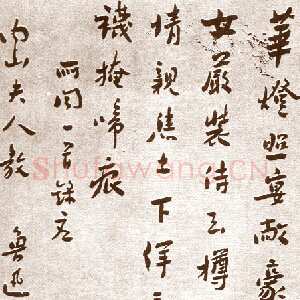 華燈照宴敞豪
女嚴裝侍玉樽
情親焦土下佯
襪掩啼痕
所聞一首錄
内山夫人教 魯迅
Shufawang.CN